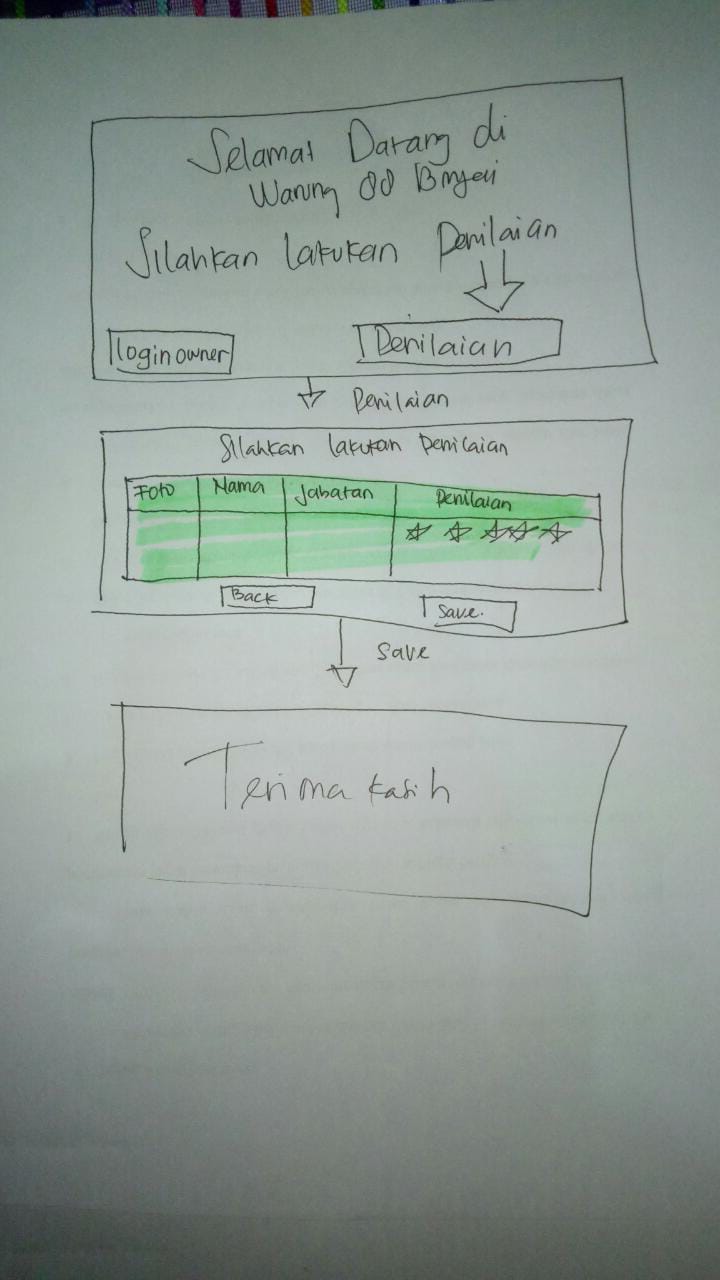 Selamat Datang di
Warung
Silahkan lakukan Penilaian
login owner
Penilaian
Penilaian
Silahkan lakukan penilaian
Foto Nama Jabatan Penilaian
Back
Save.
Save
Terima kasih